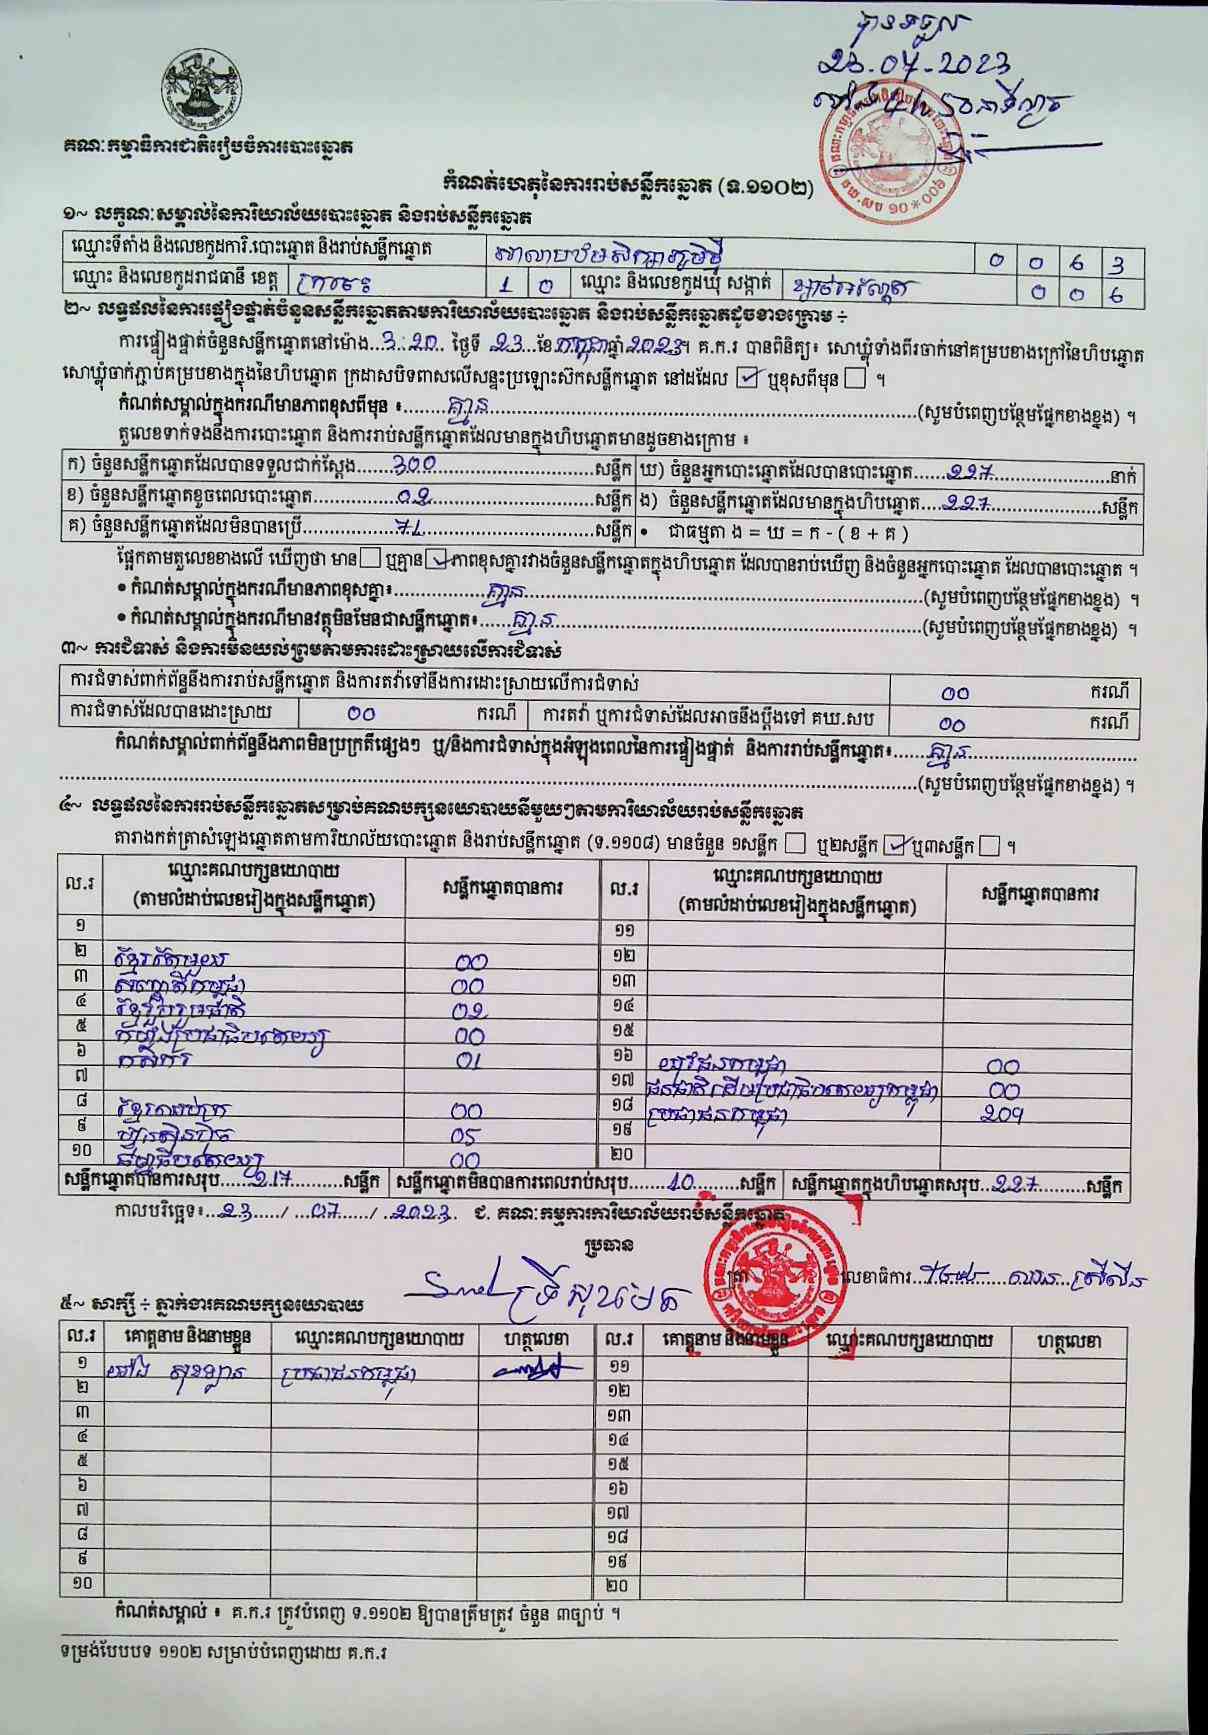 បានទទួល
23-07-2023
គណៈកម្មាធិការជាតិរៀបចំការបោះឆ្នោត
កំណត់ហេតុនៃការរាប់សន្លឹកឆ្នោត (ទ.១១០២)
១~ លក្ខណៈសម្គាល់នៃការិយាល័យបោះឆ្នោត និងរាប់សន្លឹកឆ្នោត
ឈ្មោះទីតាំង និងលេខកូដការិ.បោះឆ្នោត និងរាប់សន្លឹកឆ្នោត សាលាបឋមសិក្សាភូមិថ្មី 0 0 6 3
ឈ្មោះ និងលេខកូដរាជធានី ខេត្ត ក្រចេះ 1 0 ឈ្មោះ និងលេខកូដឃុំ សង្កាត់ 0 0 6
២~ លទ្ធផលនៃការផ្ទៀងផ្ទាត់ចំនួនសន្លឹកឆ្នោតតាមការិយាល័យបោះឆ្នោត និងរាប់សន្លឹកឆ្នោតដូចខាងក្រោម ÷
ការផ្ទៀងផ្ទាត់ចំនួនសន្លឹកឆ្នោតនៅម៉ោង...3:20... ថ្ងៃទី 23 ខែកក្កដា ឆ្នាំ 2023។ គ.ក.រ បានពិនិត្យ៖ សោឃ្លុំទាំងពីរចាក់នៅគម្របខាងក្រៅនៃហិបឆ្នោត
សោឃ្លុំចាក់ភ្ជាប់គម្របខាងក្នុងនៃហិបឆ្នោត ក្រដាសបិទពាសលើសន្ទះប្រឡោះស៊កសន្លឹកឆ្នោត នៅដដែល ☑ ឬខុសពីមុន ☐ ។
កំណត់សម្គាល់ក្នុងករណីមានភាពខុសពីមុន ៖........គ្មាន........(សូមបំពេញបន្ថែមផ្នែកខាងខ្នង) ។
តួលេខទាក់ទងនឹងការបោះឆ្នោត និងការរាប់សន្លឹកឆ្នោតដែលមានក្នុងហិបឆ្នោតមានដូចខាងក្រោម ៖
ក) ចំនួនសន្លឹកឆ្នោតដែលបានទទួលជាក់ស្ដែង........300........សន្លឹក ឃ) ចំនួនអ្នកបោះឆ្នោតដែលបានបោះឆ្នោត......227......នាក់
ខ) ចំនួនសន្លឹកឆ្នោតខូចពេលបោះឆ្នោត........02........សន្លឹក ង) ចំនួនសន្លឹកឆ្នោតដែលមានក្នុងហិបឆ្នោត......227......សន្លឹក
គ) ចំនួនសន្លឹកឆ្នោតដែលមិនបានប្រើ........71........សន្លឹក • ជាធម្មតា ង = ឃ = ក - ( ខ + គ )
ផ្អែកតាមតួលេខខាងលើ ឃើញថា មាន ☐ ឬគ្មាន ☑ ភាពខុសគ្នារវាងចំនួនសន្លឹកឆ្នោតក្នុងហិបឆ្នោត ដែលបានរាប់ឃើញ និងចំនួនអ្នកបោះឆ្នោត ដែលបានបោះឆ្នោត ។
• កំណត់សម្គាល់ក្នុងករណីមានភាពខុសគ្នា៖........គ្មាន........(សូមបំពេញបន្ថែមផ្នែកខាងខ្នង) ។
• កំណត់សម្គាល់ក្នុងករណីមានវត្ថុមិនមែនជាសន្លឹកឆ្នោត៖......គ្មាន......(សូមបំពេញបន្ថែមផ្នែកខាងខ្នង) ។
៣~ ការជំទាស់ និងការមិនយល់ព្រមតាមការដោះស្រាយលើការជំទាស់
ការជំទាស់ពាក់ព័ន្ធនឹងការរាប់សន្លឹកឆ្នោត និងការតវ៉ាទៅនឹងការដោះស្រាយលើការជំទាស់ 00 ករណី
ការជំទាស់ដែលបានដោះស្រាយ 00 ករណី ការតវ៉ា ឬការជំទាស់ដែលអាចនឹងប្ដឹងទៅ គឃ.សប 00 ករណី
កំណត់សម្គាល់ពាក់ព័ន្ធនឹងភាពមិនប្រក្រតីផ្សេងៗ ឬ/និងការជំទាស់ក្នុងអំឡុងពេលនៃការផ្ទៀងផ្ទាត់ និងការរាប់សន្លឹកឆ្នោត៖......គ្មាន......
........(សូមបំពេញបន្ថែមផ្នែកខាងខ្នង) ។
៤~ លទ្ធផលនៃការរាប់សន្លឹកឆ្នោតសម្រាប់គណបក្សនយោបាយនីមួយៗតាមការិយាល័យរាប់សន្លឹកឆ្នោត
តារាងកត់ត្រាសំឡេងឆ្នោតតាមការិយាល័យបោះឆ្នោត និងរាប់សន្លឹកឆ្នោត (ទ.១១០៨) មានចំនួន ១សន្លឹក ☐ ឬ២សន្លឹក ☑ ឬ៣សន្លឹក ☐ ។
ល.រ ឈ្មោះគណបក្សនយោបាយ (តាមលំដាប់លេខរៀងក្នុងសន្លឹកឆ្នោត) សន្លឹកឆ្នោតបានការ ល.រ ឈ្មោះគណបក្សនយោបាយ (តាមលំដាប់លេខរៀងក្នុងសន្លឹកឆ្នោត) សន្លឹកឆ្នោតបានការ
១ ១១
២ ខ្មែរតែមួយ 00 ១២
៣ សញ្ជាតិកម្ពុជា 00 ១៣
៤ ខ្មែររួបរួមជាតិ 02 ១៤
៥ ឃ្មុំប្រជាធិបតេយ្យ 00 ១៥
៦ កសិករ 01 ១៦ យុវជនកម្ពុជា 00
៧ ១៧ ជនជាតិដើមប្រជាធិបតេយ្យកម្ពុជា 00
៨ ខ្មែរ 00 ១៨ ប្រជាជនកម្ពុជា 209
៩ ហ្វ៊ុនស៊ិនប៉ិច 05 ១៩
១០ ធម្មាធិបតេយ្យ 00 ២០
សន្លឹកឆ្នោតបានការសរុប......217......សន្លឹក សន្លឹកឆ្នោតមិនបានការពេលរាប់សរុប......10......សន្លឹក សន្លឹកឆ្នោតក្នុងហិបឆ្នោតសរុប...227......សន្លឹក
កាលបរិច្ឆេទ៖...23..../...07..../...2023... ជ. គណៈកម្មការការិយាល័យរាប់សន្លឹកឆ្នោត
ប្រធាន
ត្រា លេខាធិការ
៥~ សាក្សី ÷ ភ្នាក់ងារគណបក្សនយោបាយ
ល.រ គោត្តនាម និងនាមខ្លួន ឈ្មោះគណបក្សនយោបាយ ហត្ថលេខា ល.រ គោត្តនាម និងនាមខ្លួន ឈ្មោះគណបក្សនយោបាយ ហត្ថលេខា
១ ប្រជាជនកម្ពុជា ១១
២ ១២
៣ ១៣
៤ ១៤
៥ ១៥
៦ ១៦
៧ ១៧
៨ ១៨
៩ ១៩
១០ ២០
កំណត់សម្គាល់ ៖ គ.ក.រ ត្រូវបំពេញ ទ.១១០២ ឱ្យបានត្រឹមត្រូវ ចំនួន ៣ច្បាប់ ។
ទម្រង់បែបបទ ១១០២ សម្រាប់បំពេញដោយ គ.ក.រ